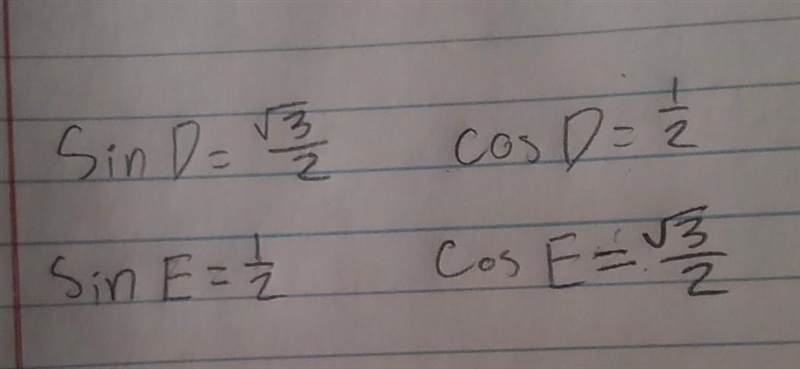 Sin D = √3/2 cos D = 1/2
Sin E = 1/2 Cos E = √3/2